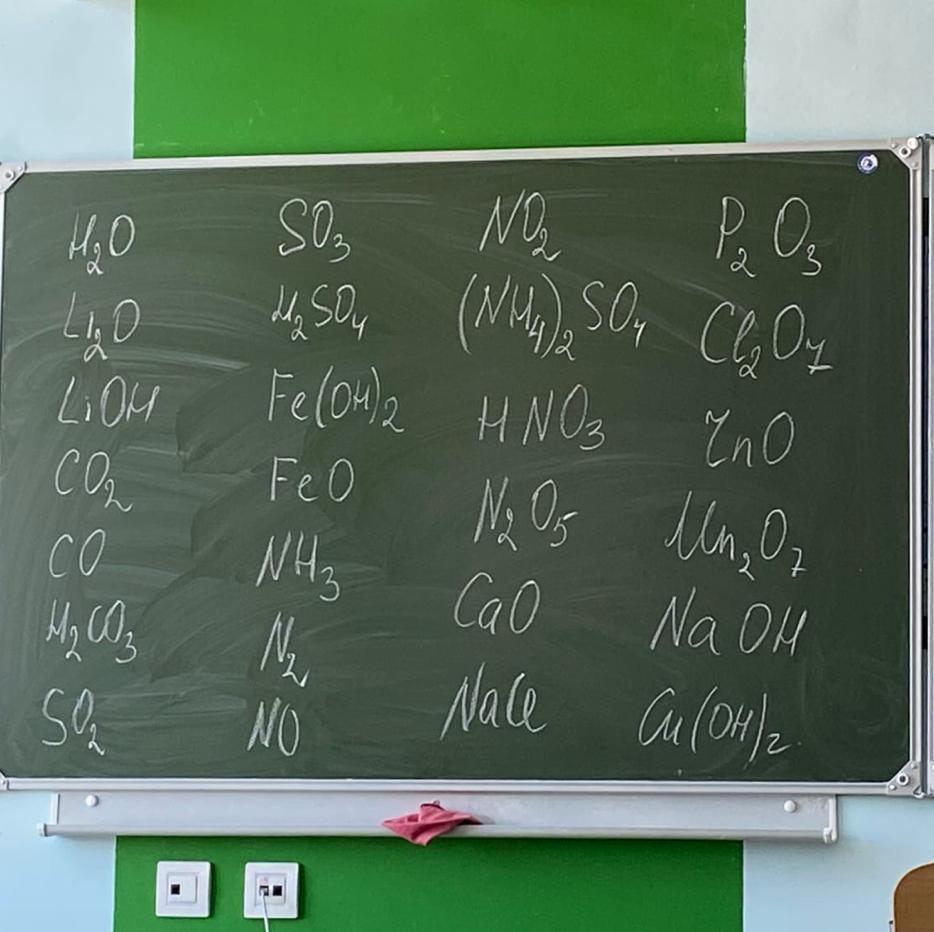 H₂O
Li₂O
LiOH
CO₂
CO
H₂CO₃
SO₂
SO₃
H₂SO₄
Fe(OH)₂
FeO
NH₃
N₂
NO
NO₂
(NH₄)₂SO₄
HNO₃
N₂O₅
CaO
NaCl
P₂O₃
Cl₂O₇
ZnO
Mn₂O₇
NaOH
Cu(OH)₂